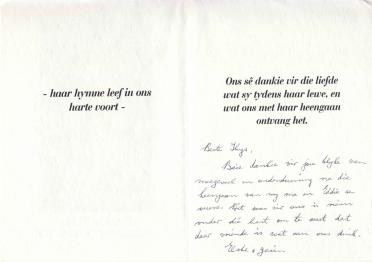 - haar hymne leef in ons
harte voort -
Ons sê dankie vir die liefde
wat sy tydens haar lewe, en
wat ons met haar heengaan
ontvang het.
Beste Thys,
Baie dankie vir jou blyke van
meegevoel en ondersteuning na die
heengaan van my ma en Eddie se
vir ons is
onder die te dat
daar vriende is wat aan ons dink.